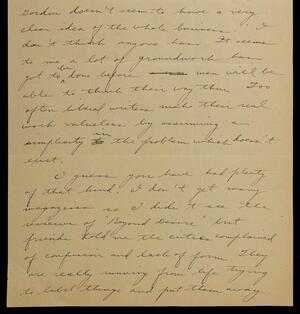 Gordon doesn't seem to have a very
clear idea of the whole business. I
don't think anyone has. It seems
to me a lot of groundwork has
got to be done before men will be
able to think their way thru Too
often liberal writers make their real
work valueless by assuming a
simplicity in the problem which doesn't
exist.
I guess you have had plenty
of that kind. I don't get many
magazines so I didn't see the
reviews of "Beyond Desire" but
friends told me the critics complained
of confusion and lack of form They
are really running from life trying
to label things and put them away